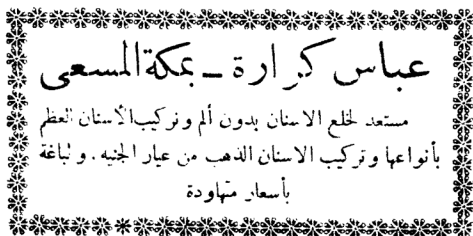 عباس كرارة ـ بمكة المسعى
مستعد لخلع الاسنان بدون ألم وتركيب الأسنان العظم
بأنواعها وتركيب الاسنان الذهب من عيار الجنيه . و لباغة
بأسعار متهاودة